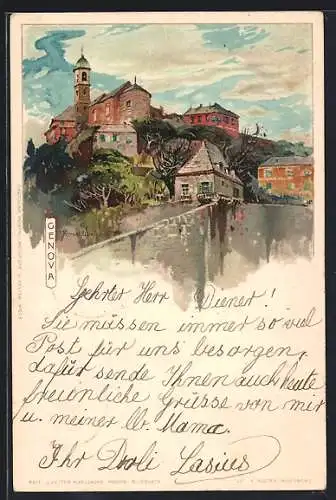 GENOVA
Gehrter Herr Diener!
Sie müssen immer so viel
Post für uns besorgen,
dafür sende Ihnen auch heute
freundliche Grüsse von mir
u. meiner lb. Mama.
Ihr Dooli Lasius